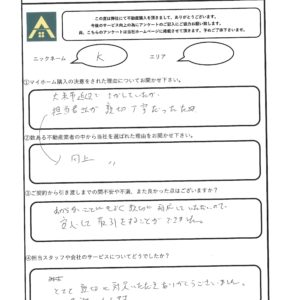 この度は弊社にて不動産購入を頂きまして、ありがとうございます。
今後のサービス向上の為にアンケートのご記入にご協力お願い致します。
尚、こちらのアンケートは当社ホームページに掲載させて頂きます。予めご了承下さいませ。
ニックネーム K エリア
①マイホーム購入の決意をされた理由についてお聞かせ下さい。
担当者が親切丁寧だった為
②数ある不動産業者の中から当社を選ばれた理由をお聞かせ下さい。
同上
③ご契約から引き渡しまでの間不安や不満、また良かった点はございますか?
安心して取引をすることができました。
④担当スタッフや会社のサービスについてどうでしたか?
とても親切に対応いただきありがとうございました。